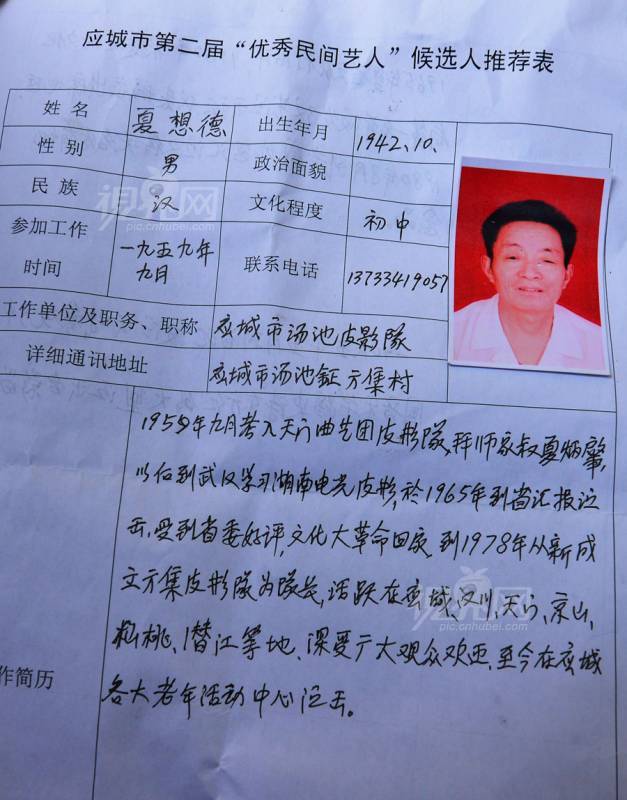 应城市第二届“优秀民间艺人”候选人推荐表
姓名 夏想德 出生年月 1942、10、
性别 男 政治面貌
民族 汉 文化程度 初中
参加工作时间 一九五九年九月 联系电话 13733419057
工作单位及职务、职称 应城市汤池皮影隊
详细通讯地址 应城市汤池鉦方集村
作简历
1959年九月考入天门曲艺团皮影隊,拜师家叔夏炳肇,
以后到武汉学习湖南电光皮影,於1965年到省汇报演
出,受到省委好评,文化大革命回家,到1978年从新成
立方集皮影隊为隊长,活跃在应城、汉川、天门、京山、
仙桃、潜江等地、深受广大观众欢迎,至今在应城
各大老年活动中心演出。
视界网
pic.cnhubei.com
视界网
pic.cnhubei.com